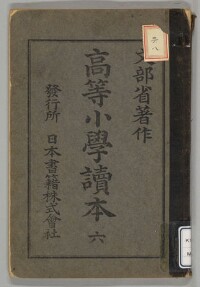 文部省著作
高等小學讀本 六
發行所 日本書籍株式會社